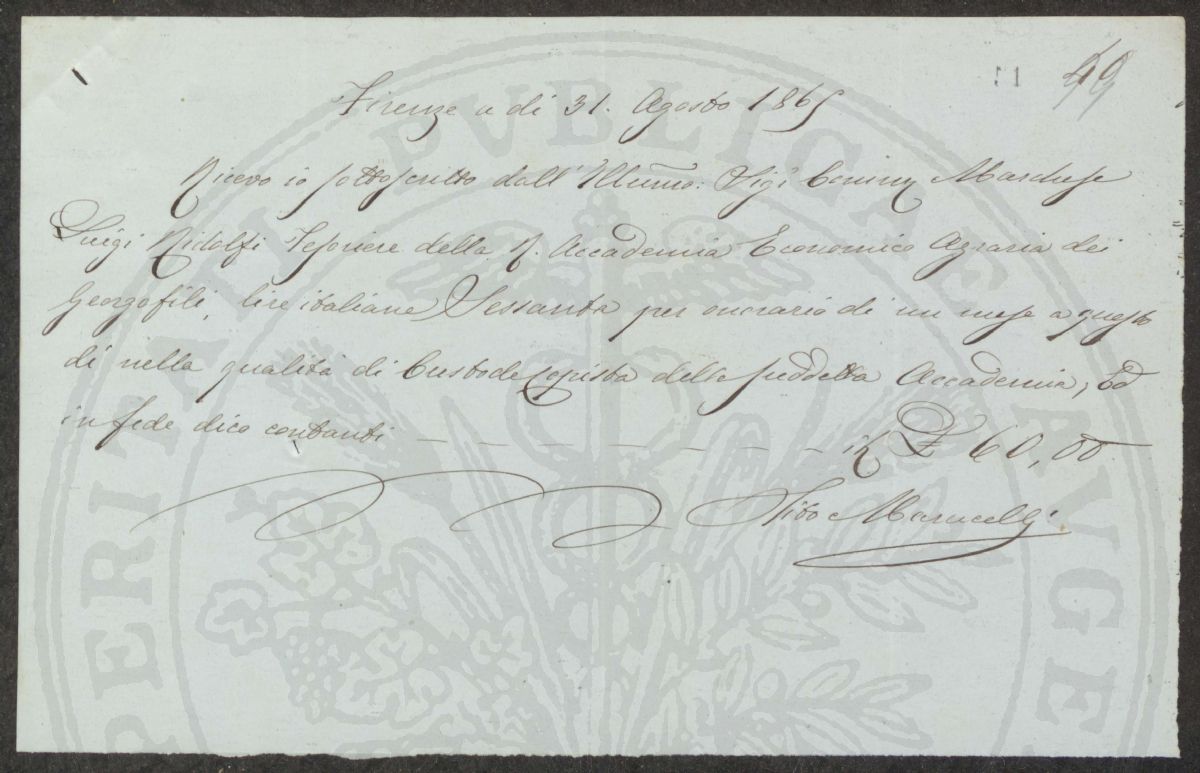 49
Firenze a di 31. Agosto 1865
Ricevo io sottoscritto dall' Illumo: Sigr Marchese
Luigi Ridolfi Tesoriere della R. Accademia Economico Agraria dei
Georgofili, lire italiane Sessanta per onorario di un mese a questo
dì nella qualità di Custode Copista della suddetta Accademia, Ed
in fede dico contanti — — — — — — — £ 60,00
Tito Marucelli
PROSPERITATI PVBLICAE AVGE